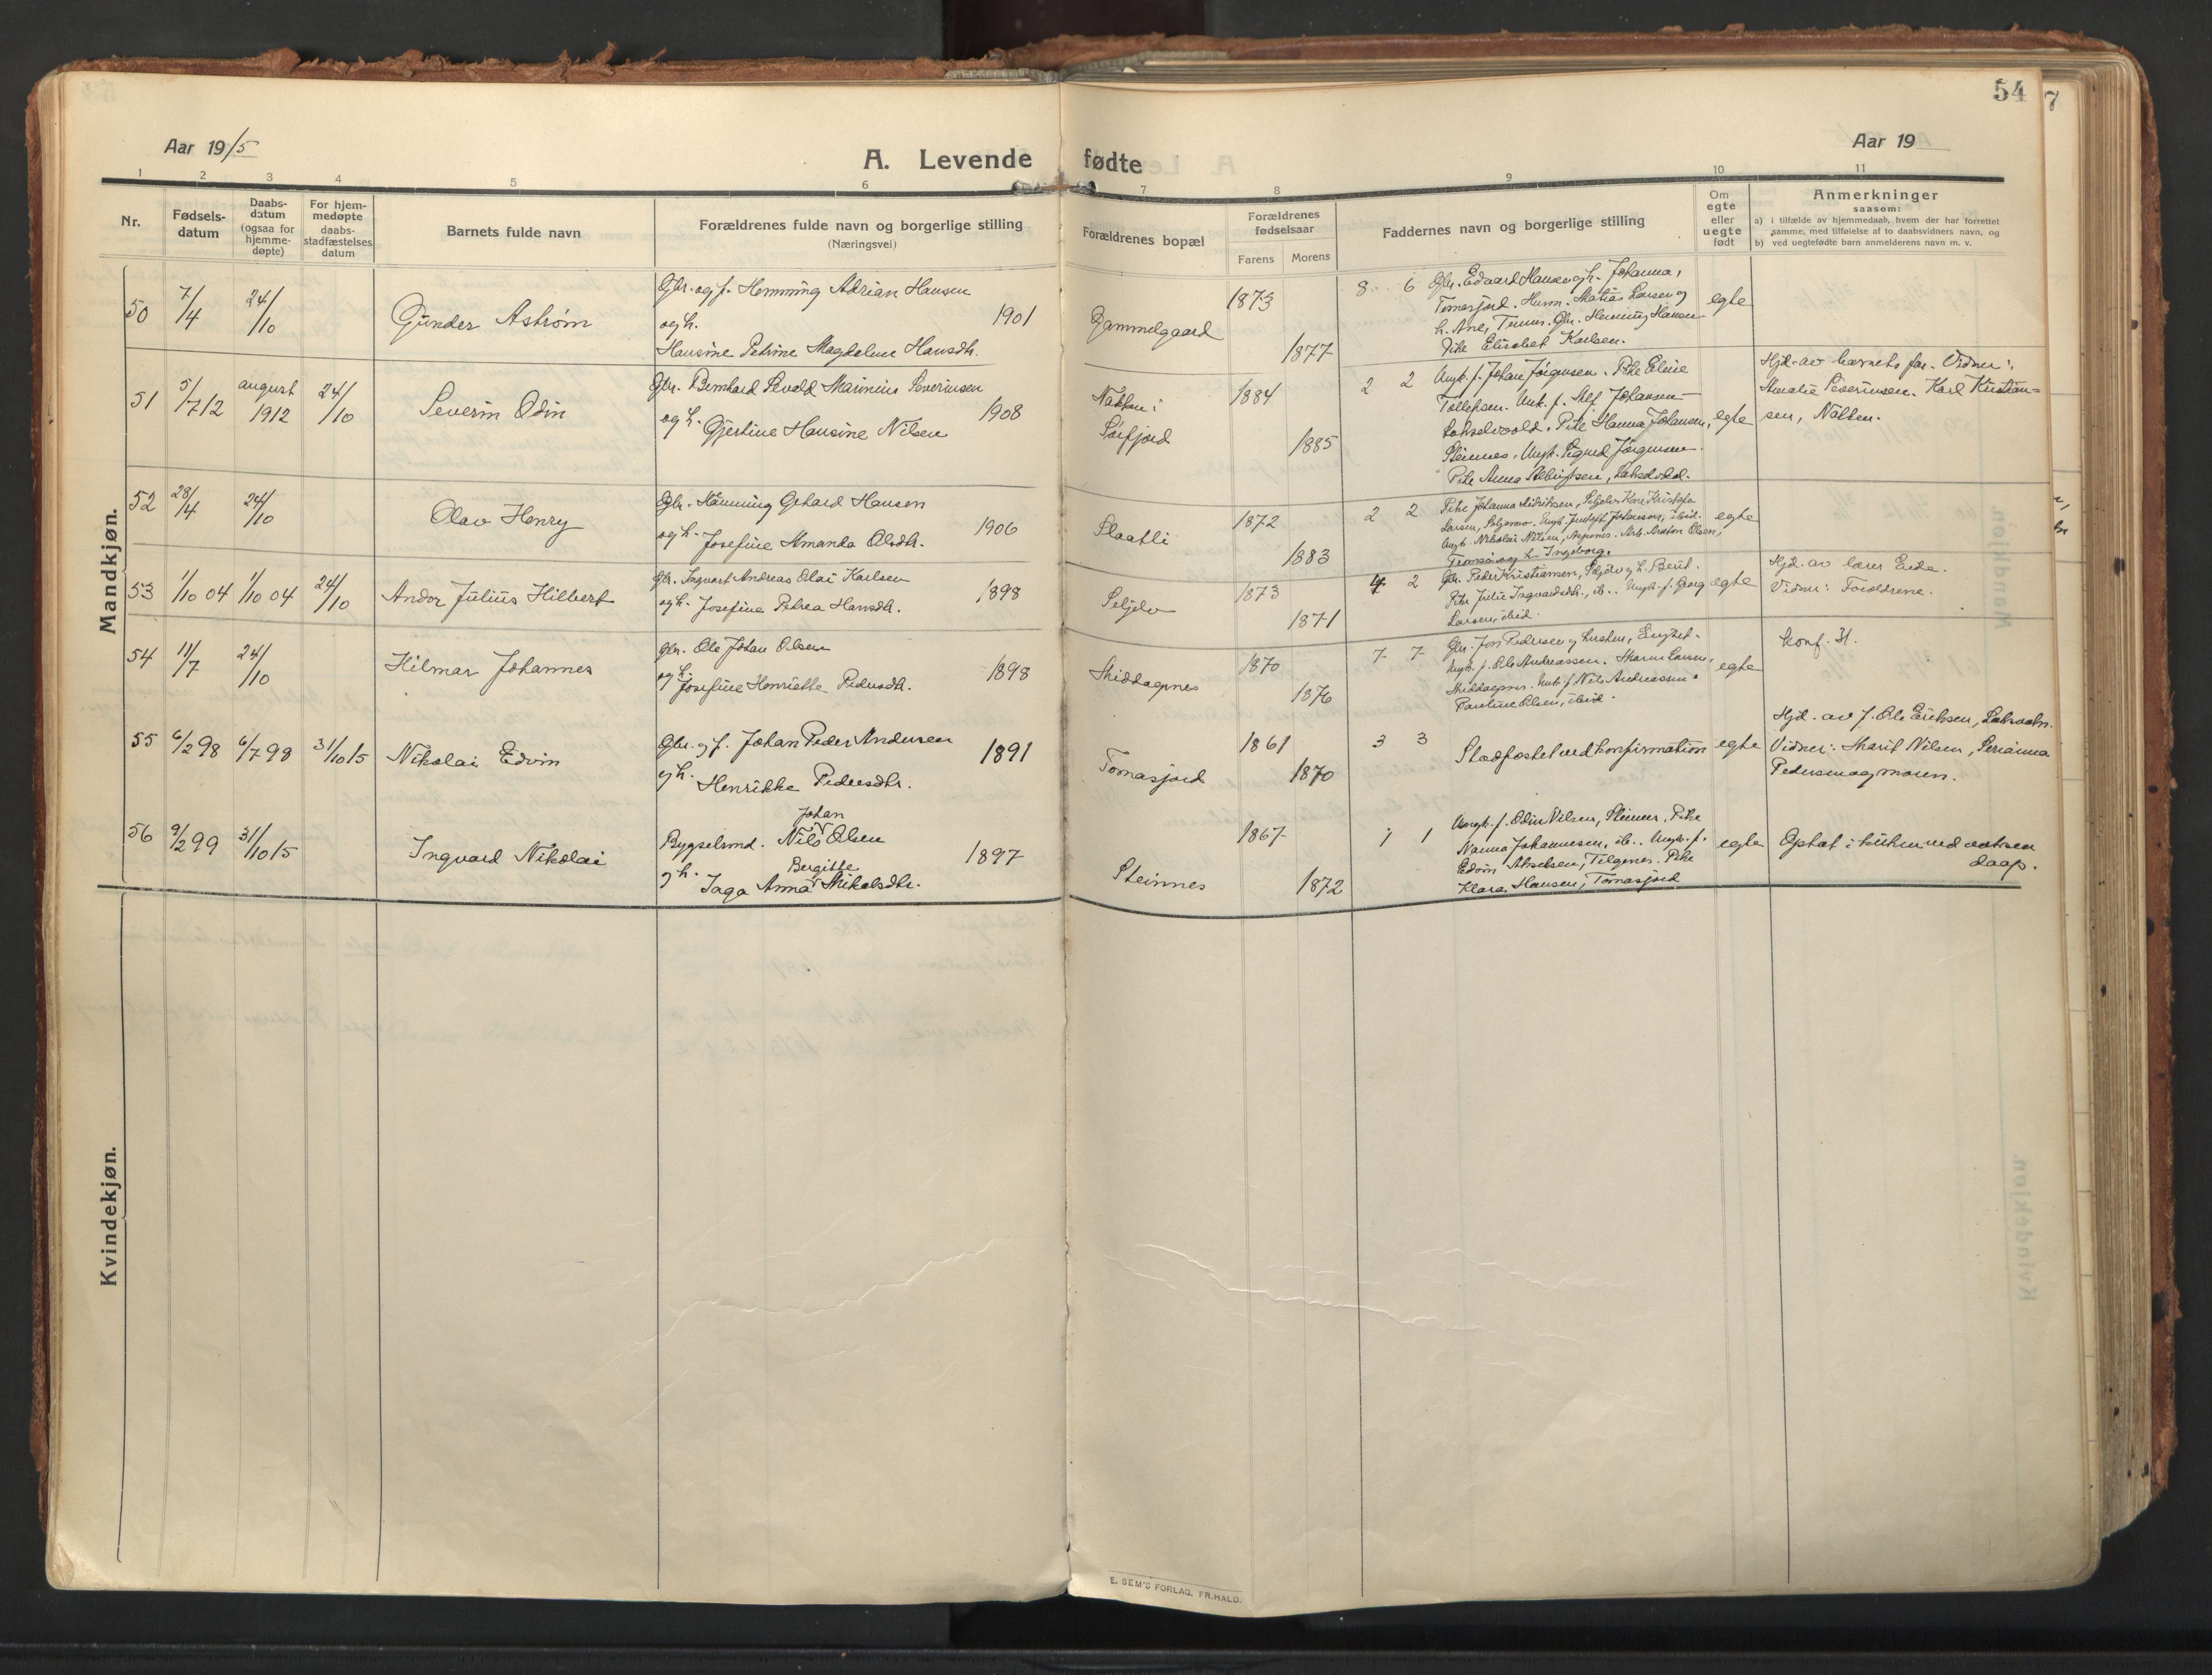 54
7
Aar 1915
A. Levende fødte
Aar 19
1 2 3 4 5 6 7 8 9 10 11
Nr.
Fødsels-
datum
Daabs-
datum
(ogsaa for
hjemme-
døpte)
For hjem-
medøpte
daabs-
stadfæstelses
datum
Barnets fulde navn
Forældrenes fulde navn og borgerlige stilling
(Næringsvei)
Forældrenes bopæl
Forældrenes
fødselsaar
Farens Morens
Faddernes navn og borgerlige stilling
Om
egte
eller
uegte
født
Anmerkninger
saasom:
a) i tilfælde av hjemmedaab, hvem der har forrettet
samme, med tilføielse af to daabsvidners navn, og
b) ved uegtefødte barn anmelderens navn m. v.
Mandkjøn.
50 7/4 24/10 Gunder Astrøm
Gbr. og f. Hemming Adrian Hansen
og h. 1901
Hansine Petrine Magdalene Hansdtr.
Gammelgaard 1873 1877
8 6 Gbr. Edvard Hansen og h. Johanna,
Tomasjord. Husm. Matias Larsen og
h. Ane, Gbr. Henning Hansen.
Pike Elisabet Karlsen.
egte
51 5/7 12 august 1912 24/10 Severin Odin
Gbr. Bernhard Sevald Marinius Severinsen
og h. Gjertine Hansine Nilsen 1908
Nakken i
Sørfjord 1884 1885
2 2 Ungk. f. Johan Jörgensen. Pike Eline
Tollefsen. Unk. f. Alf Johansen
Lakselvvold. Pike Hanna Johansen,
Steinnes. Ungk. Sigurd Jörgensen.
Pike Anna
egte
Hjd. av barnets far. Vidner:
Amalie Severinsen. Karl Kristian=
sen, Nakken.
52 28/4 24/10 Olav Henry
Gbr. Hemming Gerhard Hansen
og h. Josefine Amanda Olsdtr. 1906
Slaatli 1872 1883
2 2 Pike Johanna Didriksen, Seljelv. Kone Kristofa
Larsen, Seljelv. Ungk. Johansen, ibid.
Ungk. Nikolai Nilsen, Arb. Anton Olsen,
Tromsö og h. Ingeborg.
egte
53 1/10 04 1/10 04 24/10 Andor Julius Hilbert
Gbr. Ingvart Andreas Olai Karlsen
og h. Josefine Petrea Hansdtr. 1898
Seljelv 1873 1871
4 2 Gbr. Peder Kristiansen, Seljelv og h. Berit.
Pike Julie Ingvardsdtr., ib.. Ungk. f. Georg
Larsen, ibid.
egte
Hjd. av lærer Eide.
Vidner: Forældrene.
54 11/7 24/10 Hilmar Johannes
Gbr. Ole Johan Olsen
og h. Josefine Henriette Pedersdtr. 1898
Middagsnes 1870 1876
7 7 Gbr. Jon Pedersen og hustru,
Ungk. f. Ole Andreassen. Maren Larsen,
Middagsnes. Unk. f. Nils Andreassen.
Pauline Olsen, ibid.
egte
konf. H.
55 6/2 98 6/7 98 31/10 15 Nikolai Edvin
Gbr. og f. Johan Peder Andersen
og h. Henrikke Pedersdtr. 1891
Tomasjord 1861 1870
3 3 Stadfæstet ved konfirmation
egte
Hjd. av f. Ole Eriksen, Laksvatn.
Vidner: Marit Nilsen, Serianna
Pedersen og moren.
56 9/2 99 31/10 15 Ingvard Nikolai
Johan
Bygselmd. Nils Olsen
Bergitte
og h. Inga Anna Mikalsdtr. 1897
Steinnes 1867 1872
1 1 Ungk. f. Odin Nilsen, Steinnes. Pike
Nanna Johannesen, ib.. Ungk. f.
Edvin Akselsen, Pike
Klara Hansen, Tomasjord
egte
Optat i kirken ved voksen
daap.
Kvindekjøn.
E. SEM'S FORLAG, FR.HALD.